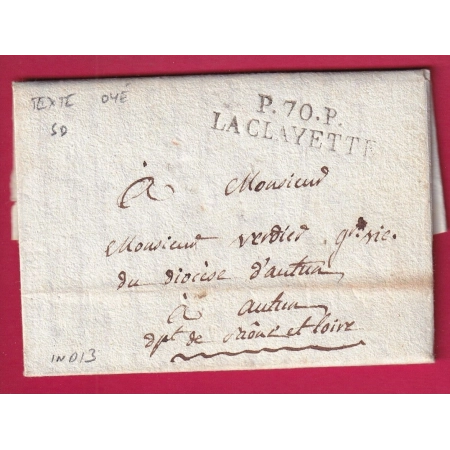 TEXTE OYÉ
SD
P.70.P.
LACLAYETTE
à Monsieur
Monsieur verdier grd vic.
du diocèse d'autun
à autun
dpt de Saône et loire
IND 13